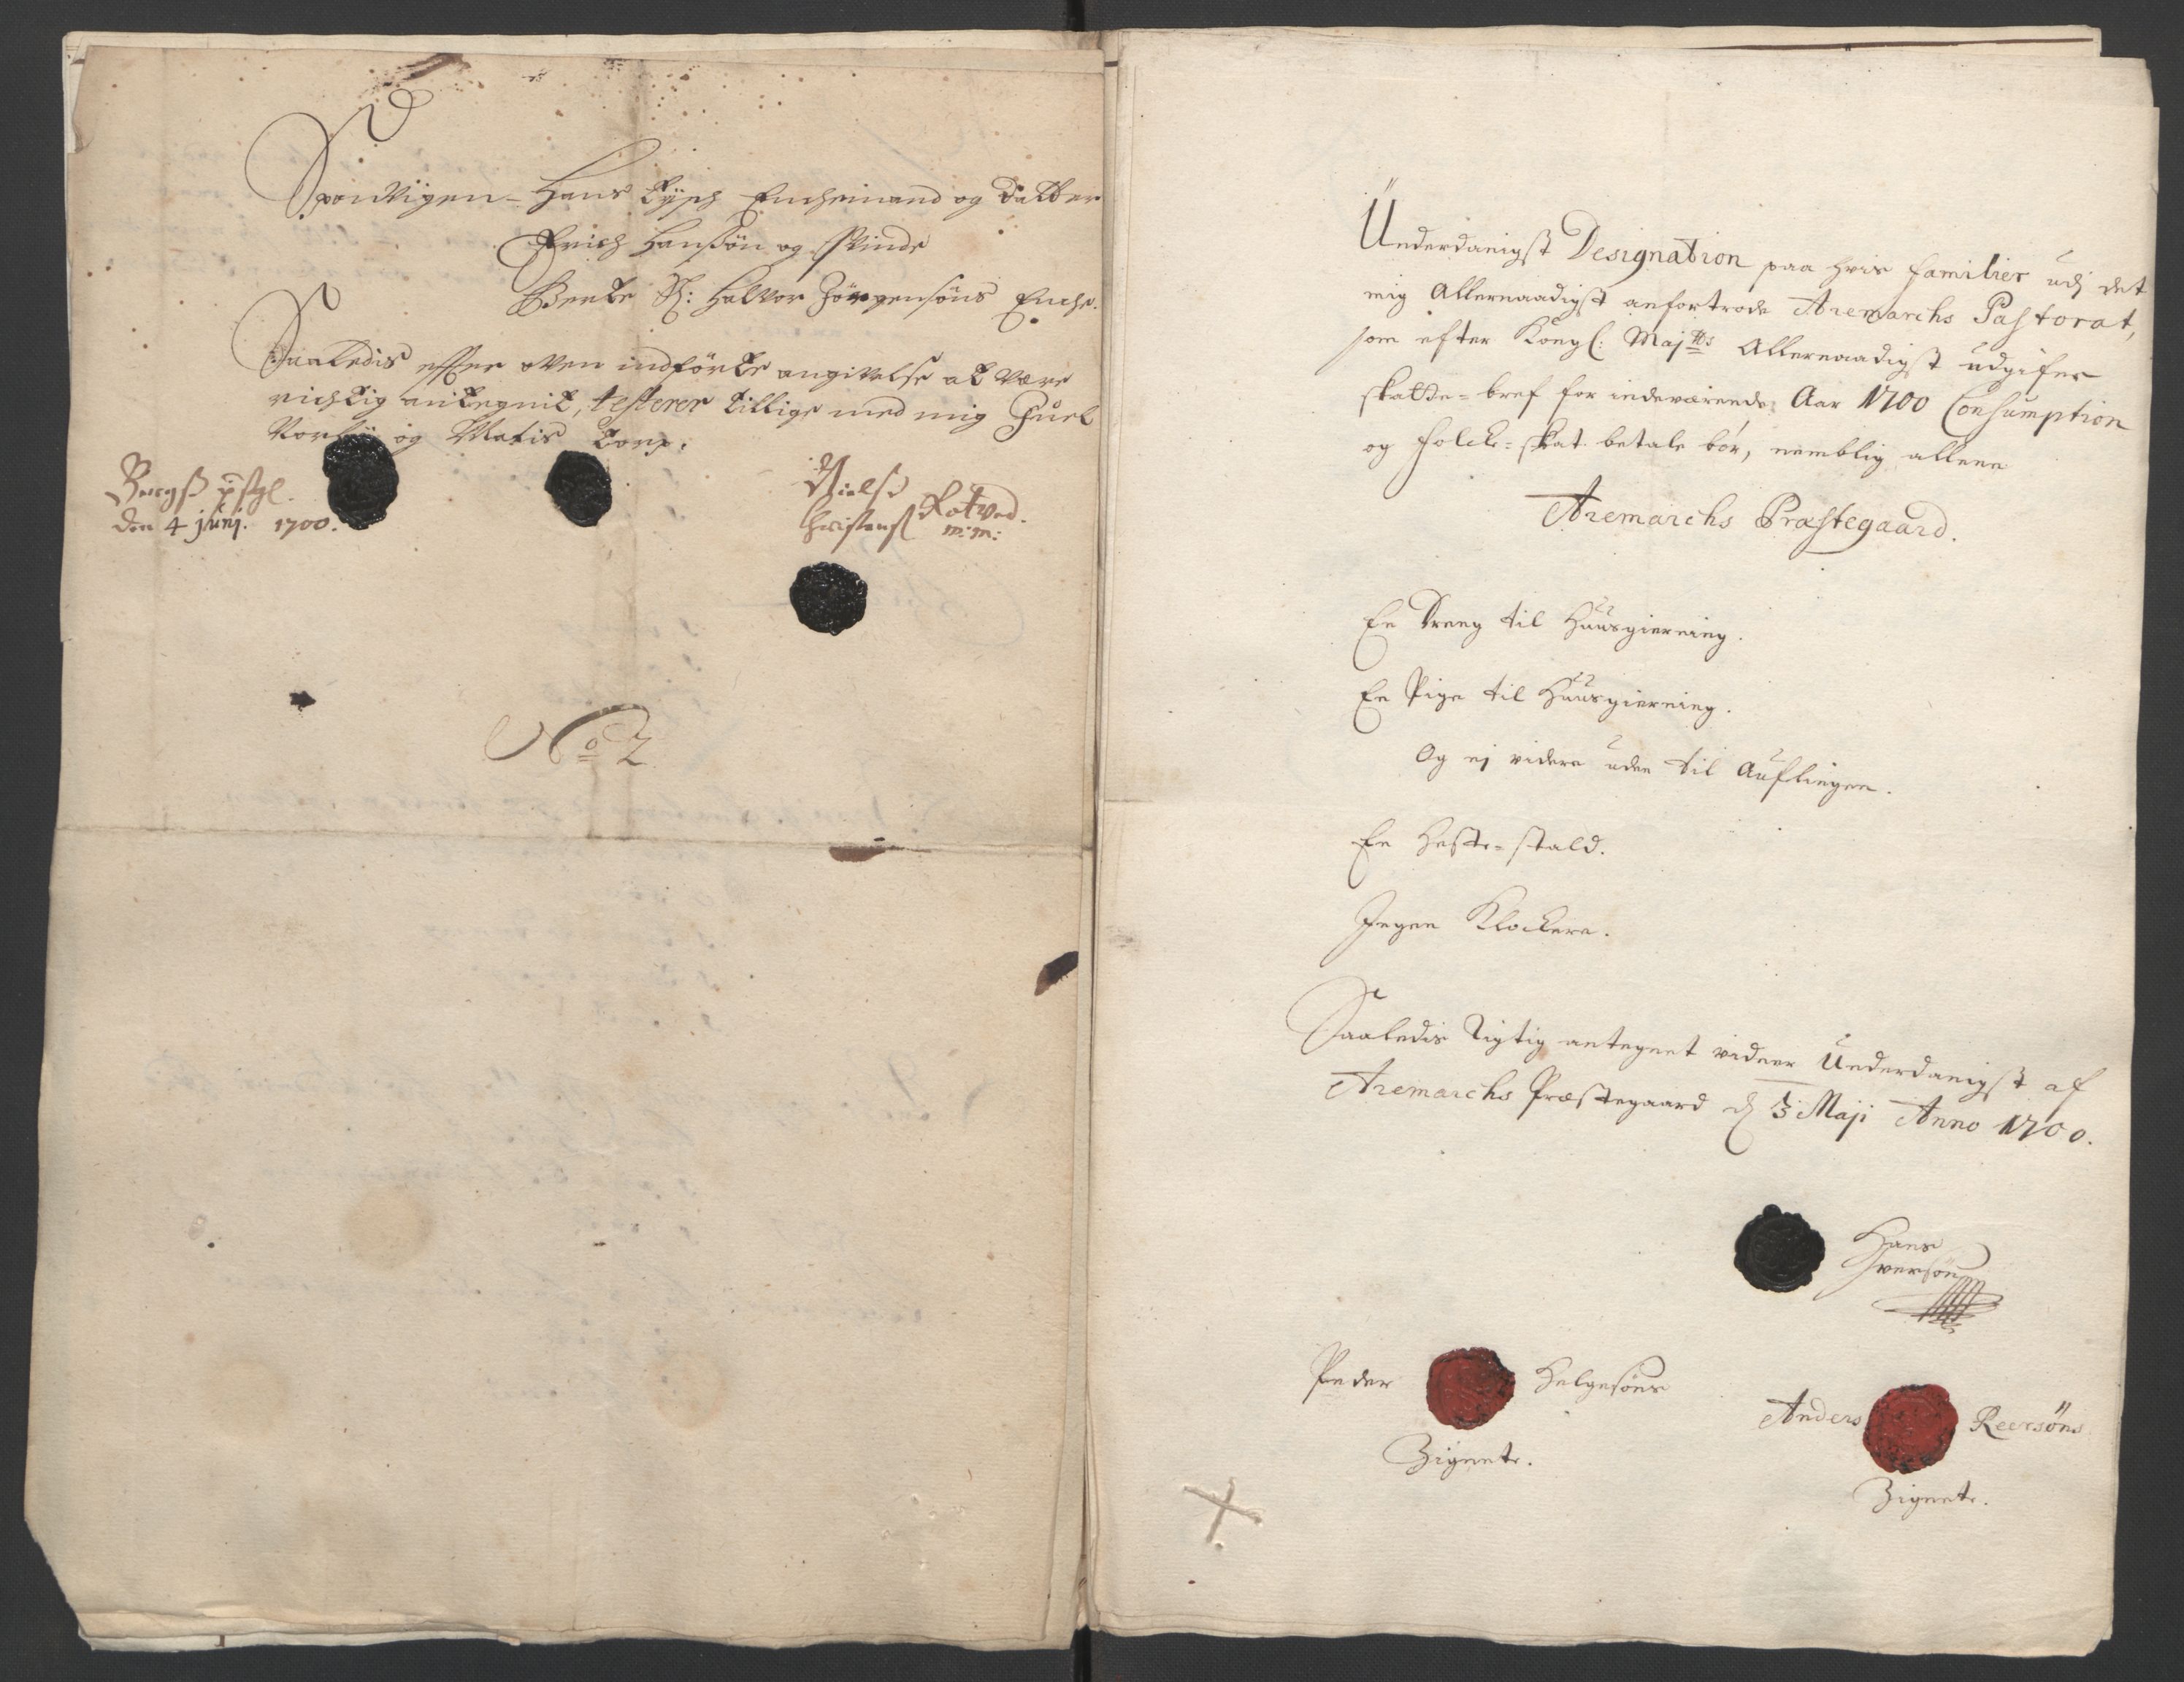 Hans Lÿch Enchemand og datter
Erich Hanssön og Qvinde
Berte S: Halvor Jörgensöns Enche.
Saaledis efter oven indförte angivelse at være
richtig antegnit, testerer tillige med mig Juel
og Matis Torp.
Bergs
den 4 junj. 1700.
Nielss
Christenss Rotved.
m: m:
No 2
Underdanigst Designation paa hvis familier udj det
mig Allernaadigst anfortrode Aremarchs Pastorat,
som efter Kongl: Majts Allernaadigst udgifne
skatte-bref for indeværende Aar 1700 Consumption
og Folcke-skat betale bör, nemblig allene
Aremarchs Præstegaard.
En Dreng til Huusgierning.
En Pige til Huusgierning.
Og ej videre uden til Auflingen.
En Heste-stald.
Ingen Klockere.
Saaledis Rigtig antegnet vidner Underdanigst af
Aremarchs Præstegaard d 3 Maji Anno 1700.
Hans
Iversön
Peder Helgesöns
Zignete.
Anders Reersöns
Zignete.